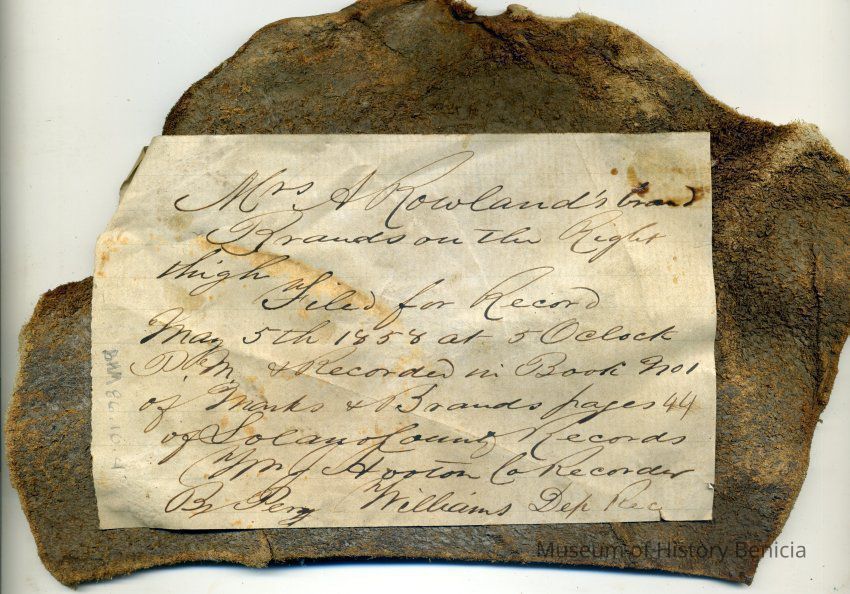 Mrs A Rowland's brand
Brands on the Right
thigh Filed for Record
May 5th 1858 at 5 Oclock
P.M. & Recorded in Book No 1
of Marks & Brands pages 44
of Solano County Records
Wm J Hooton Co Recorder
By Perry Williams Dep Rec
BHM 86.10.4
Museum of History Benicia